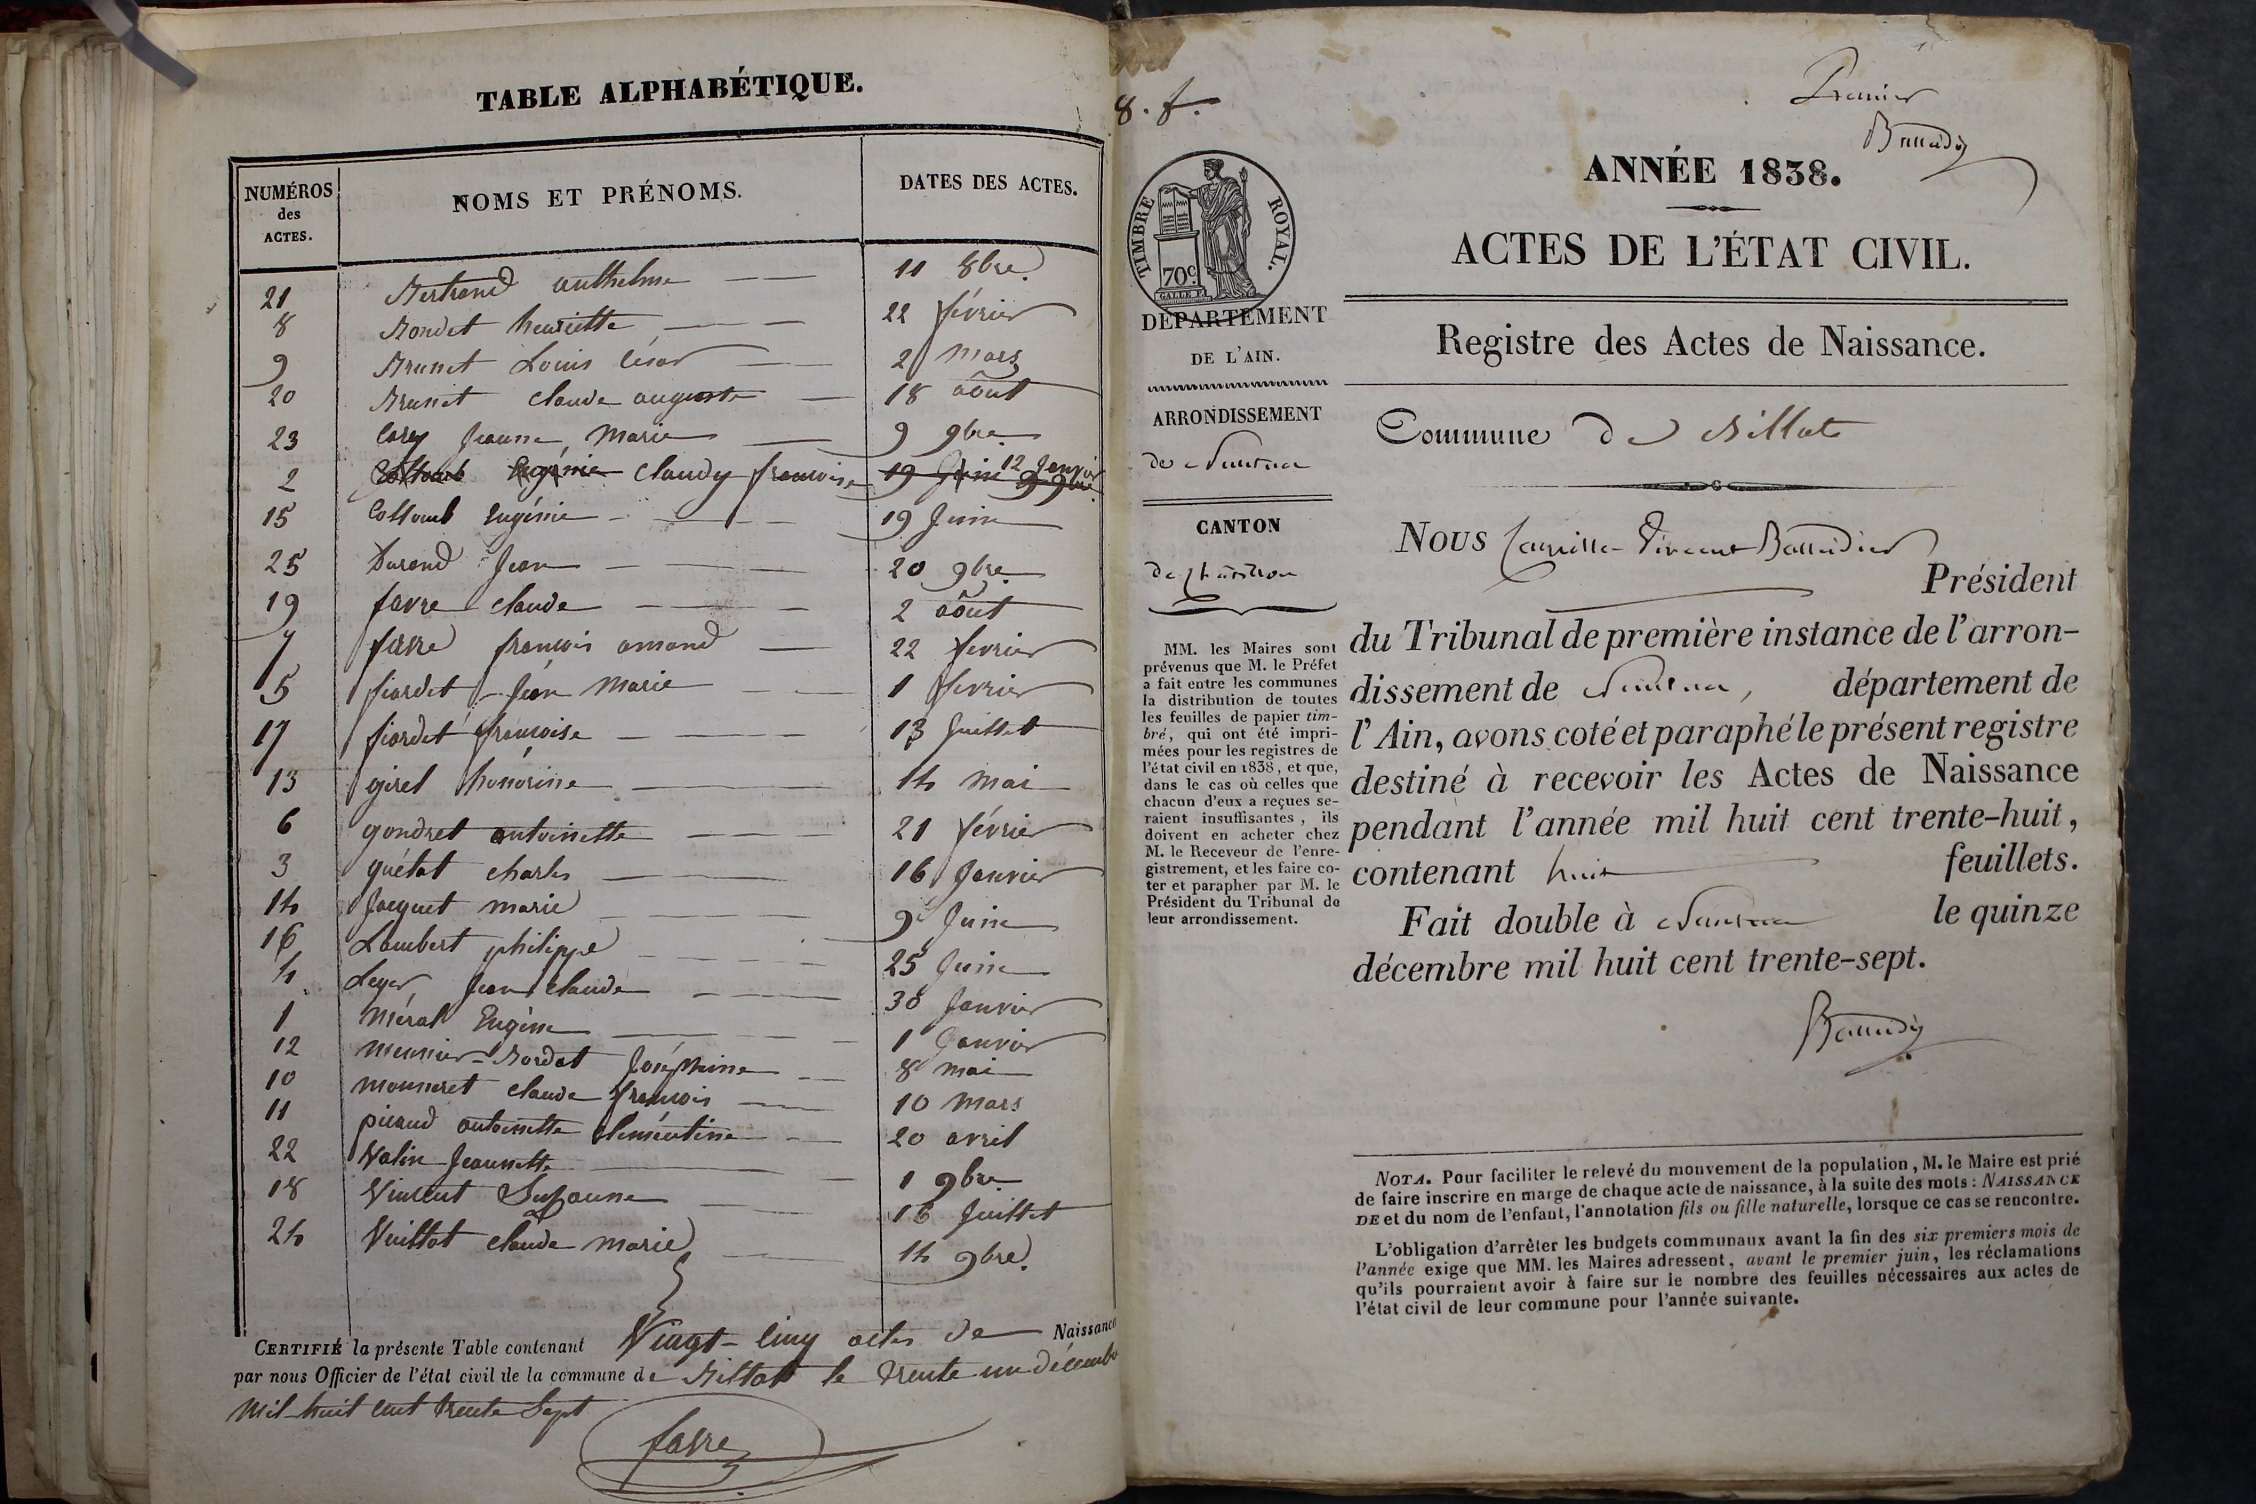 TABLE ALPHABÉTIQUE.
NUMÉROS des ACTES. NOMS ET PRÉNOMS. DATES DES ACTES.
21 Bertrand anthelme 11 8bre.
8 Bondet henriette 22 février
9 Brunet Louis César 2 Mars
20 Brunet claude auguste 18 août
23 Carry Jeanne Marie 9 9bre
2 Collomb Eugénie Claudy françoise 19 Juin 12 Janvier 9 9bre
15 Collomb Eugénie 19 Juin
25 Durand Jean 20 9bre
19 favre claude 2 août
7 favre françois amand 22 fevrier
5 fiardet Jean Marie 1 fevrier
17 fiardet françoise 13 Juillet
13 girel honorine 14 Mai
6 gondret antoinette 21 février
3 guétat charles 16 Janvier
14 Jacquet marie 9 Juin
16 Lambert philippe 25 Juin
4 Leger Jean claude 30 Janvier
1 Méral Eugène 1 Janvier
12 Meunier-Bordat Joséphine 8 mai
10 Monneret claude françois 10 Mars
11 picaud antoinette clémentine 20 avril
22 Valin Jeannette 1 9bre
18 Vincent Suzanne 16 Juillet
24 Vuillot claude marie 14 9bre.
CERTIFIÉ la présente Table contenant Vingt-cinq actes de Naissance
par nous Officier de l'état civil de la commune de Billiat le trente un décembre
Mil huit cent trente Sept
favre
8. f.
Premier
ANNÉE 1838.
ACTES DE L'ÉTAT CIVIL.
Registre des Actes de Naissance.
TIMBRE ROYAL.
70c
DÉPARTEMENT
DE L'AIN.
ARRONDISSEMENT
de Nantua
CANTON
de Châtillon
MM. les Maires sont
prévenus que M. le Préfet
a fait entre les communes
la distribution de toutes
les feuilles de papier tim-
bré, qui ont été impri-
mées pour les registres de
l'état civil en 1838, et que,
dans le cas où celles que
chacun d'eux a reçues se-
raient insuffisantes, ils
doivent en acheter chez
M. le Receveur de l'enre-
gistrement, et les faire co-
ter et parapher par M. le
Président du Tribunal de
leur arrondissement.
Commune de Billiat
NOUS Camille Vincent Baudier
Président
du Tribunal de première instance de l'arron-
dissement de Nantua, département de
l'Ain, avons coté et paraphé le présent registre
destiné à recevoir les Actes de Naissance
pendant l'année mil huit cent trente-huit,
contenant huit feuillets.
Fait double à Nantua le quinze
décembre mil huit cent trente-sept.
NOTA. Pour faciliter le relevé du mouvement de la population, M. le Maire est prié
de faire inscrire en marge de chaque acte de naissance, à la suite des mots : NAISSANCE
DE et du nom de l'enfant, l'annotation fils ou fille naturelle, lorsque ce cas se rencontre.
L'obligation d'arrêter les budgets communaux avant la fin des six premiers mois de
l'année exige que MM. les Maires adressent, avant le premier juin, les réclamations
qu'ils pourraient avoir à faire sur le nombre des feuilles nécessaires aux actes de
l'état civil de leur commune pour l'année suivante.